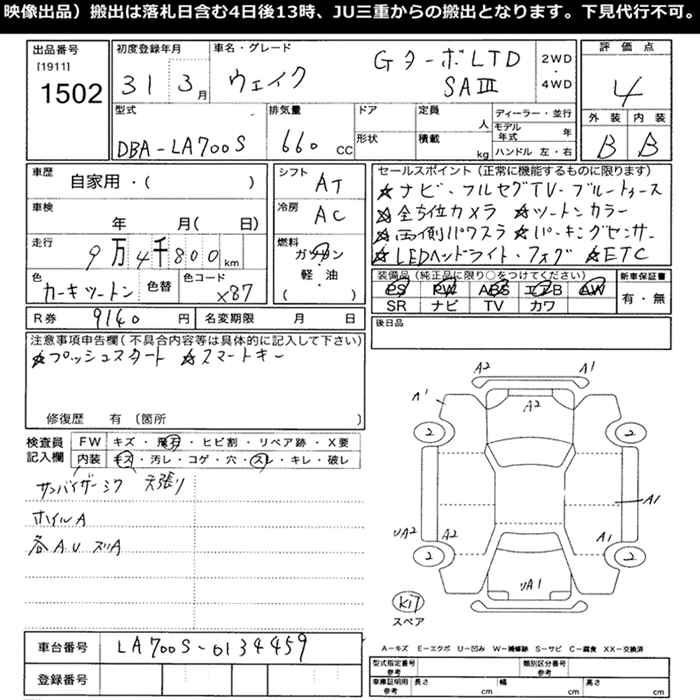 映像出品）搬出は落札日含む4日後13時、JU三重からの搬出となります。下見代行不可。
出品番号
[1911]
1502
初度登録年月
31 3月
車名・グレード
ウェイク
GターボLTD
SAⅢ
2WD
・
4WD
評価点
4
外装 内装
B B
型式
DBA-LA700S
排気量
660 CC
ドア
形状
定員 人
積載 kg
ディーラー・並行
モデル年式 年
ハンドル 左・右
車歴
自家用・( )
車検
年 月( 日)
走行
9万4千800km
色
カーキツートン
色替
色コード
X87
シフト
AT
冷房
AC
燃料
ガソリン
・
軽・油
( )
セールスポイント（正常に機能するものに限ります）
★ナビ・フルセグTV・ブルートゥース
★全方位カメラ ★ツートンカラー
★両側パワスラ ★パーキングセンサー
★LEDヘッドライト・フォグ ★ETC
装備品（純正品に限り○をつけてください）
PS PW ABS エアB AW
SR ナビ TV カワ
新車保証書
有・無
R券 9140 円
名変期限 月 日
後日品
注意事項申告欄（不具合内容等は具体的に記入して下さい）
★プッシュスタート ★スマートキー
修復歴 有 〔箇所 〕
検査員
記入欄
FW キズ・飛石・ヒビ割・リペア跡・X要
内装 キズ・汚レ・コゲ・穴・スレ・キレ・破レ
サンバイザーシワ 天張り
ホイルA
各A.U ズリA
A2 A1
A1 A2
2 2
A1
UA2 A2 A1
2 2
UA1
K17
スペア
A－キズ E－エクボ U－凹み W－補修跡 S－サビ C－腐食 XX－交換済
車台番号 LA700S-0134459
登録番号
型式指定番号
参考
類別区分番号
参考
車庫証明用
参考
長さ cm 幅 cm 高さ cm